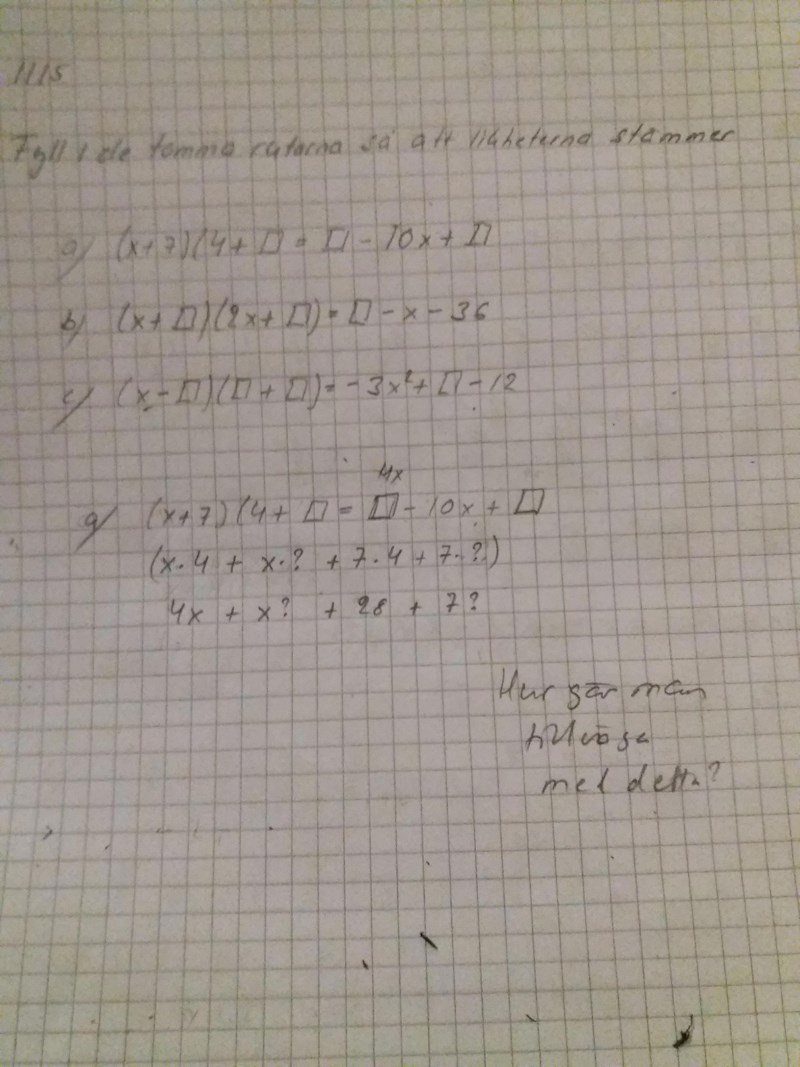 1115
Fyll i de tomma rutorna så att likheterna stämmer
a) (x+7)(4+□ = □ - 10x + □
b) (x+□)(2x+□) = □ - x - 36
c) (x-□)(□+□) = -3x²+□-12
4x
a) (x+7)(4+□ = □ - 10x + □
(x·4 + x·? + 7·4 + 7·?)
4x + x? + 28 + 7?
Hur går man
tillväga
med detta?